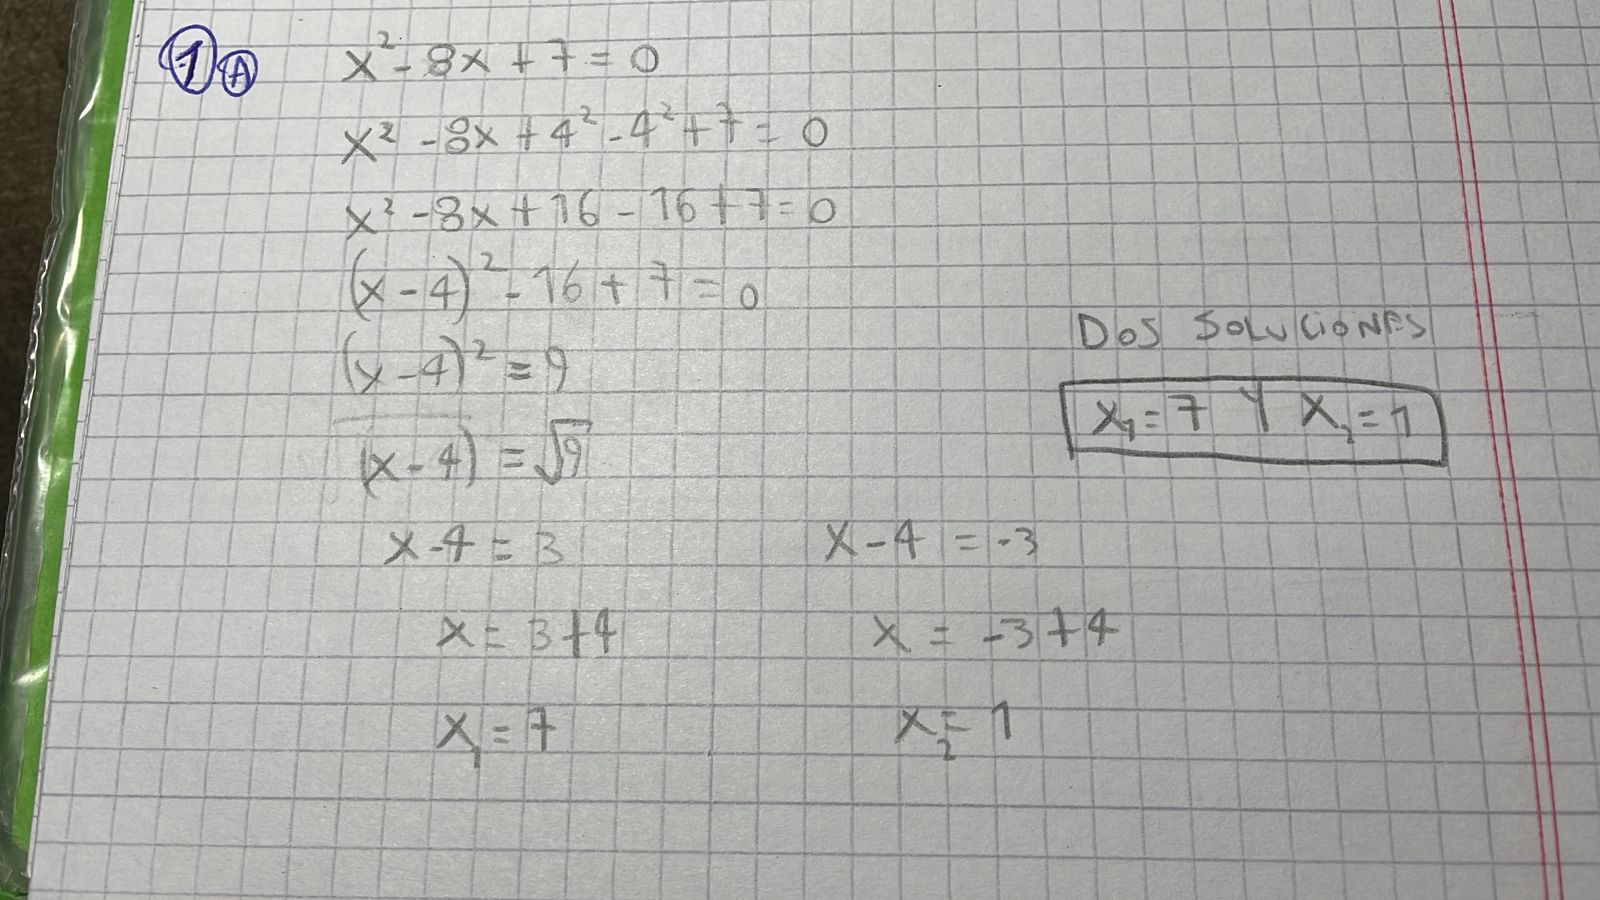 1 A x² - 8x + 7 = 0
x² - 8x + 4² - 4² + 7 = 0
x² - 8x + 16 - 16 + 7 = 0
(x - 4)² - 16 + 7 = 0
(x - 4)² = 9
(x - 4) = √9
x - 4 = 3
x = 3 + 4
x₁ = 7
x - 4 = -3
x = -3 + 4
x₂ = 1
DOS SOLUCIONES
x₁ = 7 Y x₂ = 1